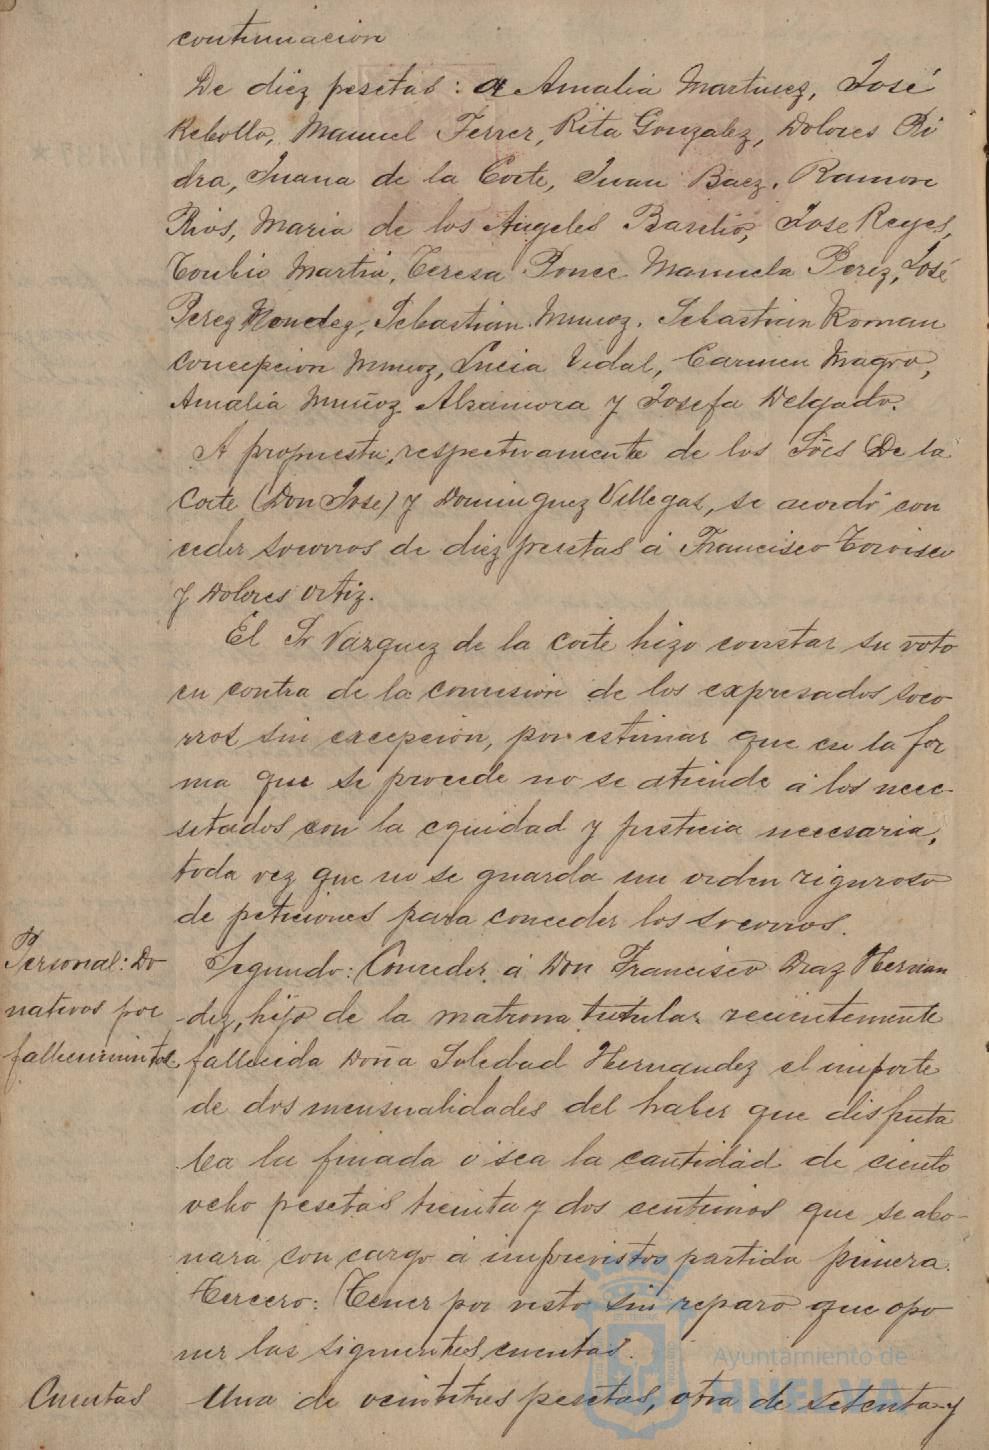 continuacion
De diez pesetas: a Amalia Martinez, José
Rebollo, Manuel Ferrer, Rita Gonzalez, Dolores Ri
dra, Juana de la Corte, Juan Baez, Ramon
Rios, Maria de los Angeles Basilio, Jose Reyes,
Toribio Martin, Teresa Ponce Manuela Perez, José
Perez Mendez, Sebastian Munoz, Sebastian Roman
Concepcion Munoz, Lucia Vidal, Carmen Magro,
Amalia Muñoz Alzamora y Josefa Delgado.
A propuesta, respectivamente de los Sres De la
Corte (Don Jose) y Dominguez Villegas, se acordó con
ceder socorros de diez pesetas á Francisco
y Dolores Ortiz.
El Sr Vazquez de la Corte hizo constar su voto
en contra de la concesion de los expresados soco
rros sin excepcion, por estimar que en la for
ma que se procede no se atiende á los nece-
sitados con la equidad y justicia necesaria,
toda vez que no se guarda un orden riguroso
de peticiones para conceder los socorros.
Personal: Do
nativos por
fallecimientos
Segundo: Conceder á Don Francisco Diaz Hernan
dez, hijo de la matrona titular recientemente
fallecida Doña Soledad Hernandez el importe
de dos mensualidades del haber que disfruta
ba la finada ó sea la cantidad de ciento
ocho pesetas treinta y dos centimos que se abo-
nara con cargo á imprevistos partida primera.
Tercero: Tener por visto sin reparo que opo
ner las siguientes cuentas.
Cuentas
Una de veintitres pesetas, otra de setenta y
Ayuntamiento de
HUELVA